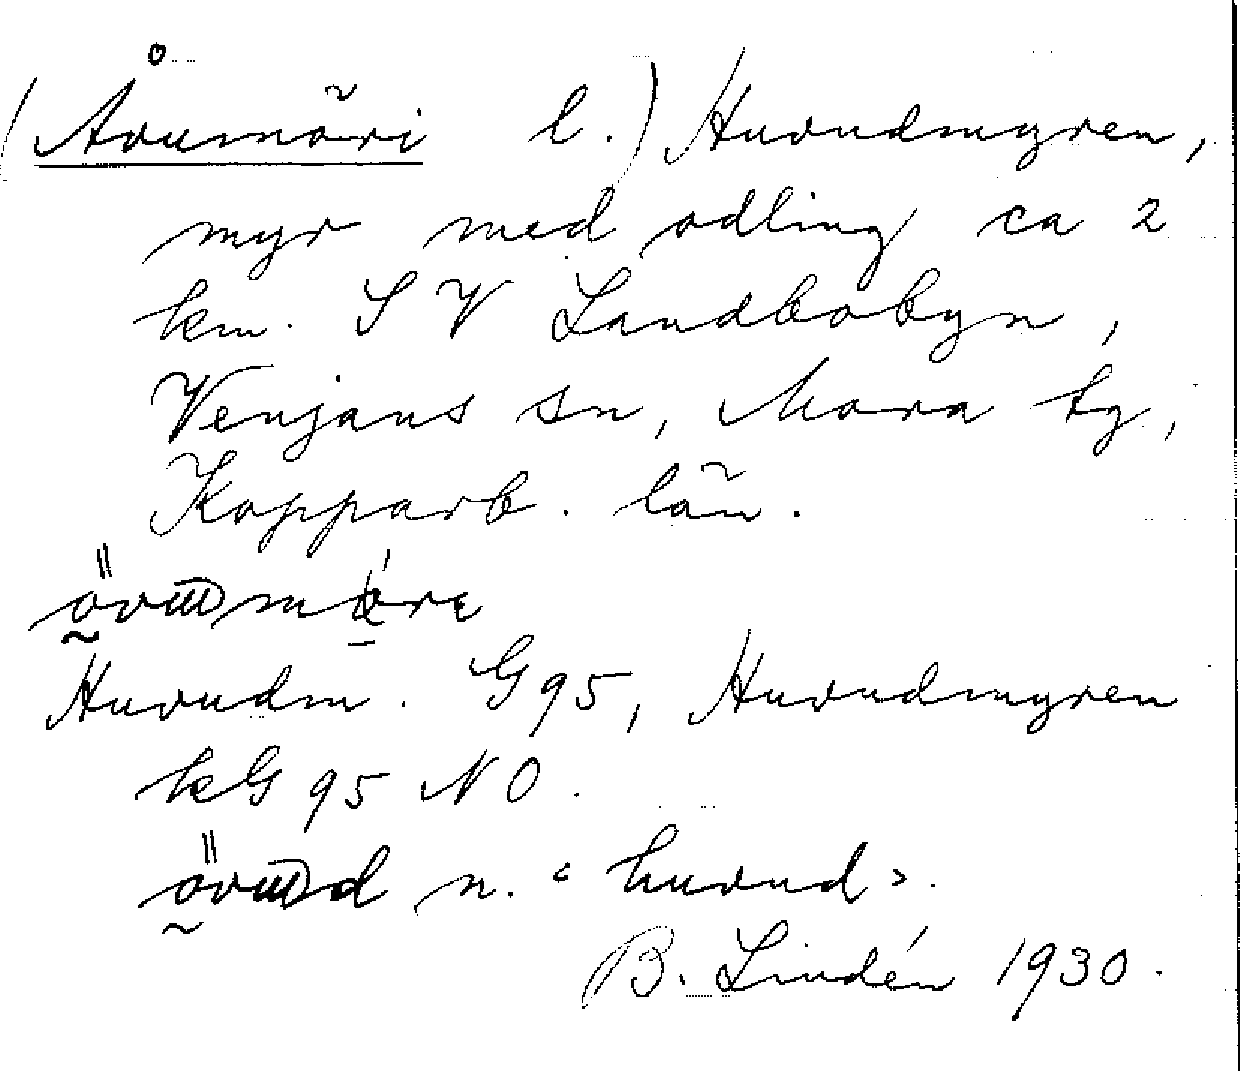 (Åvumöri l.) Huvudmyren,
myr med odling ca 2
km. SV Landbobyn,
Venjans sn, Mora tg,
Kopparb. län.
Huvudm. G95, Huvudmyren
kG 95 NO.
n. "huvud".
B. Lindén 1930.